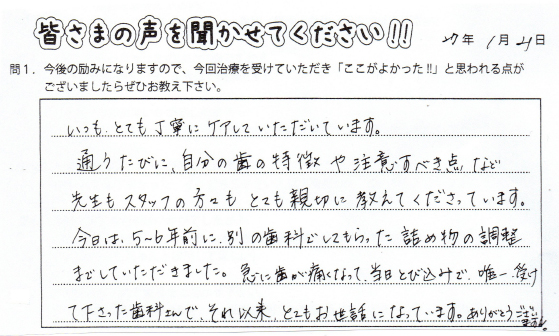 皆さまの声を聞かせてください!!
27年 1月 21日
問1. 今後の励みになりますので、今回治療を受けていただき「ここがよかった!!」と思われる点が
ございましたらぜひお教え下さい。
いつも、とても丁寧にケアしていただいています。
通うたびに、自分の歯の特徴や注意すべき点など
先生もスタッフの方々もとても親切に教えてくださっています。
今日は、5〜6年前に、別の歯科でしてもらった詰め物の調整
までしていただきました。急に歯が痛くなって、当日とび込みで、唯一、受け
て下さった歯科さんで、それ以来、とてもお世話になっています。ありがとうござい
ます。